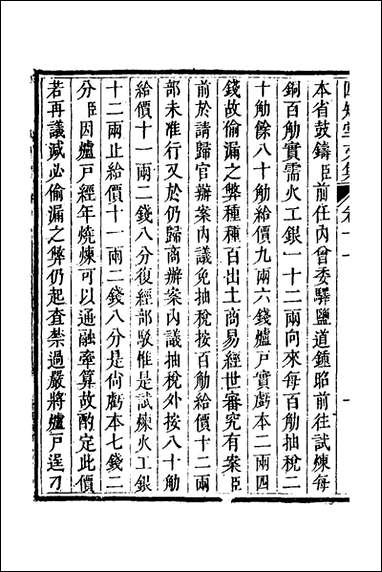 四知堂文集 卷十一 一
本省鼓鑄臣前任內曾委驛鹽道鍾昭前往試煉每
銅百觔實需火工銀一十二兩向來每百觔抽稅二
十觔餘八十觔給價九兩六錢爐戶實虧本二兩四
錢故偷漏之弊種種百出土商易經世審究有案臣
前於請歸官辦案內議免抽稅按百觔給價十二兩
部未准行又於仍歸商辦案內議抽稅外按八十觔
給價十一兩二錢八分復經部駁惟是試煉火工銀
十二兩止給價十一兩二錢八分是尚虧本七錢二
分臣因爐戶經年燒煉可以通融牽算故酌定此價
若再議減必偷漏之弊仍起查禁過嚴將爐戶逞刁